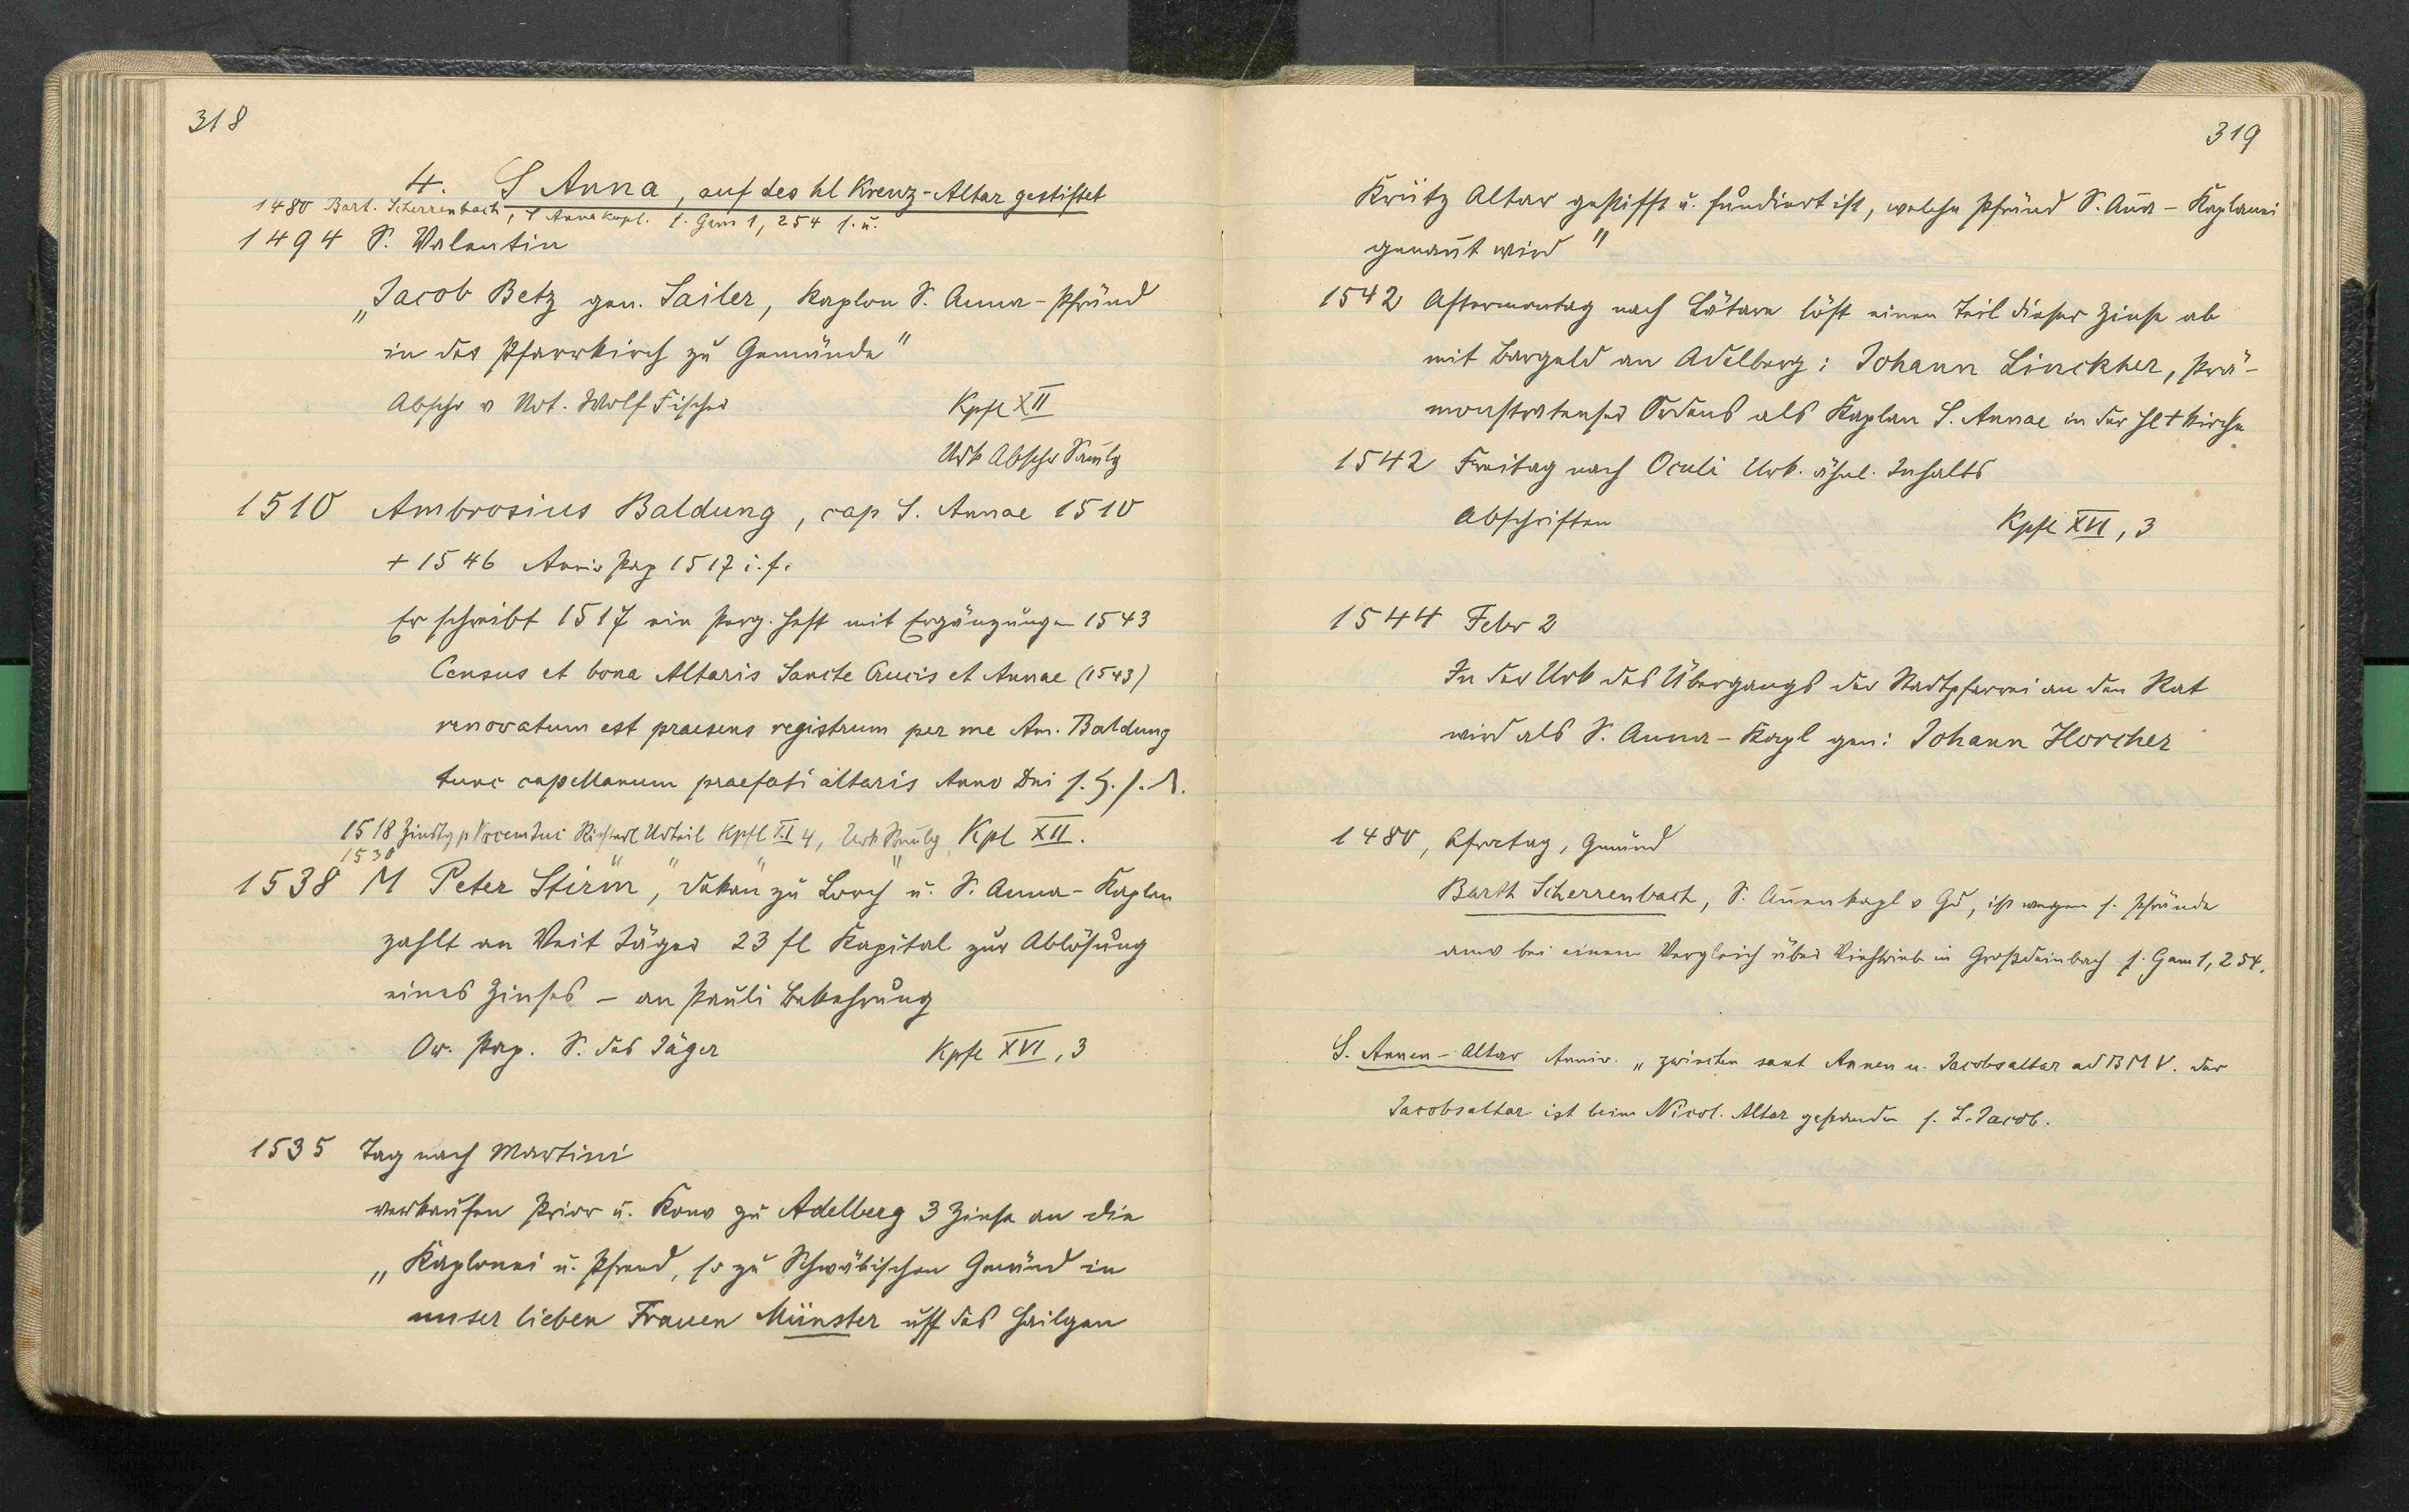 318
4. S Anna, auf des hl Kreuz-Altar gestiftet
1480 Bart. Scherrenbach, S Anna Kapl. s. Gem 1, 254 s. u.
1494 S. Valentin
„Jacob Betz gen. Sailer, Kaplan S. Anna-Pfründ
in der Pfarrkirch zu Gemünde"
Abschr v Not. Wolf Fischer Kpfl XII
Urk Abschr
1510 Ambrosius Baldung, cap S. Annae 1510
+ 1546 Anniv Pap 1517 i. f.
Er schreibt 1517 ein Perg. Heft mit Ergänzungen 1543
Census et bona Altaris Sancte Crucis et Annae (1543)
renovatum est praesens registrum per me Am. Baldung
tunc capellanum praefati altaris Anno Dni
1518 Urteil Kpfl XI 4, Urk Kpl XII.
1530
1538 M Peter Stirm, „Dekan" zu Lorch u. S. Anna-Kaplan
zahlt an Veit Jäger 23 fl Kapital zur Ablösung
eines Zinses – an Pauli Bekehrung
Or. Pap. S. des Jäger Kpfl XVI, 3
1535 Tag nach Martini
verkaufen Prior u. Konv zu Adelberg 3 Zinse an die
„Kaplonei u. Pfrend, so zu Schwäbischen Gmünd in
unser lieben Frauen Münster uff des Hailgen
319
Krütz Altar gestifft u. fundiert ist, welche Pfründ S. Anna-Kaplanei
genannt wird"
1542 Aftermontag nach Lätare löst einen Teil dieser Zinse ab
mit Bargeld an Adelberg: Johann Linckher, Prä-
monstratenser Ordens als Kaplan S. Annae in der Hl + Kirche
1542 Freitag nach Oculi Urk. ähnl. Inhalts
Abschriften Kpfl XVI, 3
1544 Febr 2
In der Urk des Übergangs der Stadtpfarrei an den Rat
wird als S. Anna-Kapl gen: Johann Horcher
1480, Afratag, Gmünd
Barth Scherrenbach, S. Annenkapl v Gd, ist wegen s. Pfründe
anw bei einem Vergleich über Viehtrieb in Großdeinbach s. Gem 1, 254.
S. Annen-Altar Anniv. „zwischen sant Annen u. Jacobsaltar ad BMV. Der
Jacobsaltar ist beim Nicol. Altar gestanden s. S. Jacob.